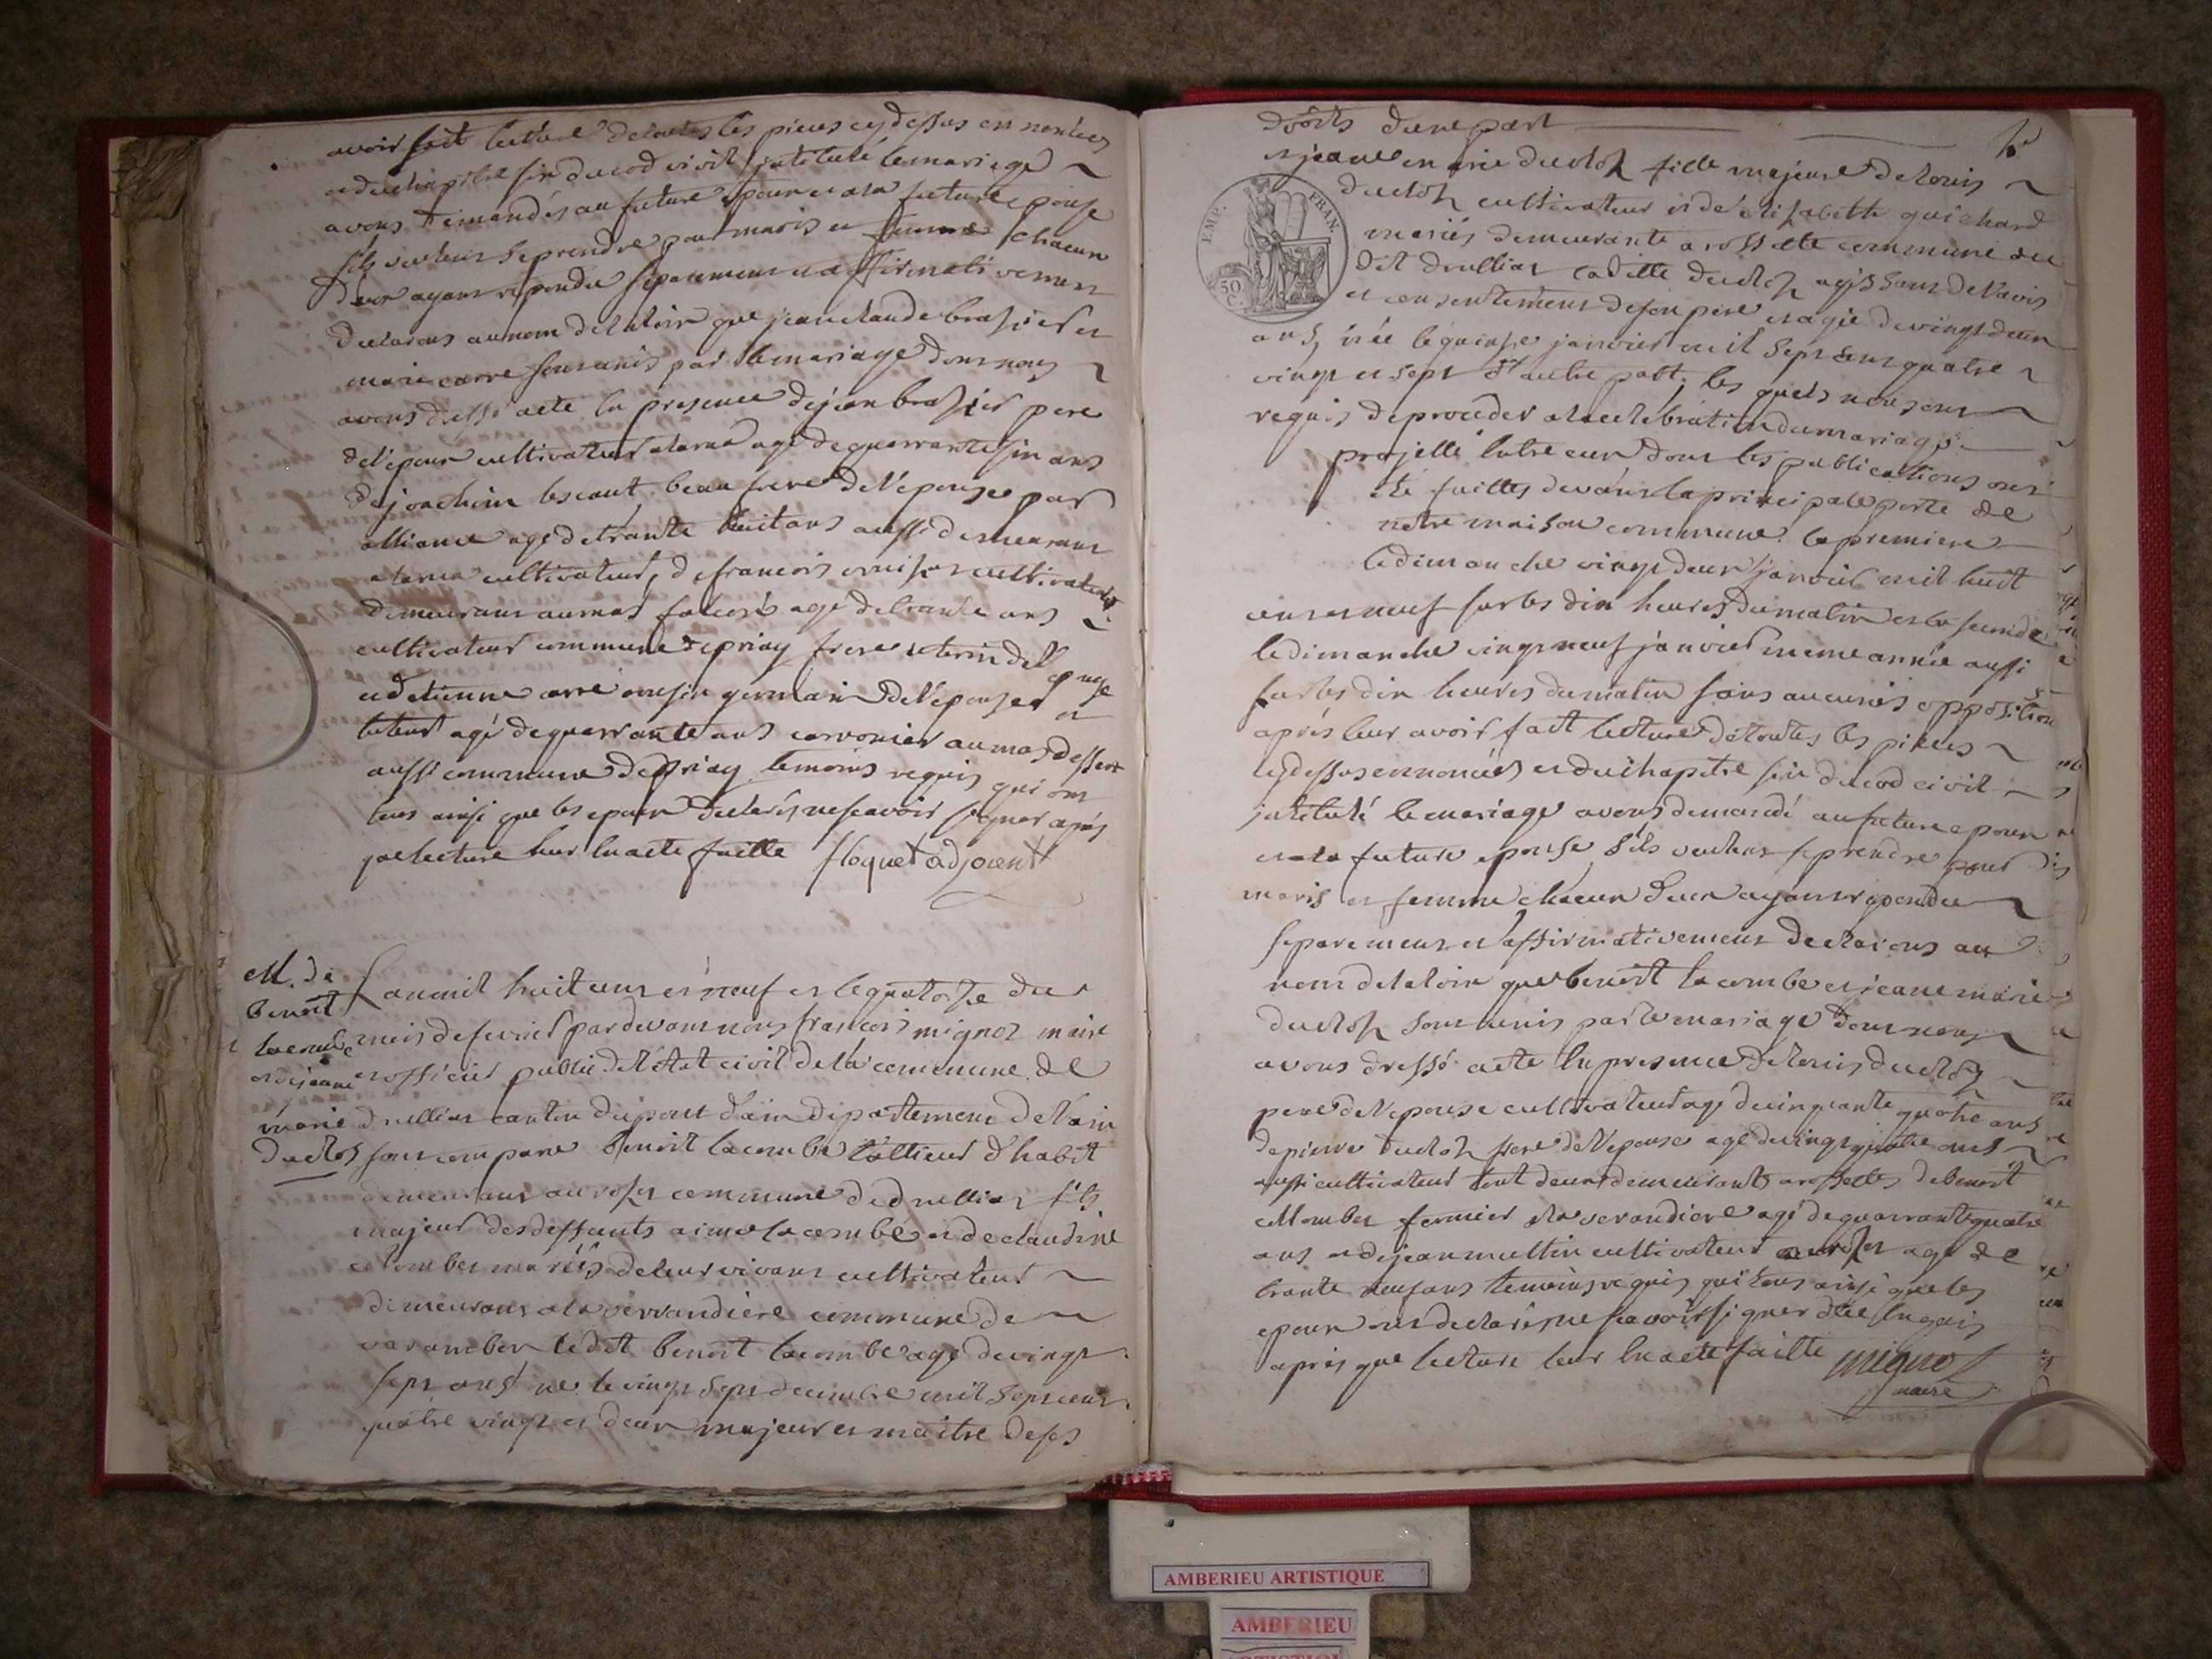 avoir fait lecture de toutes les pieces cydessus en noncées
et du chapitre six du cod civil jntitulé le mariage
avons demandés au future epoux et a la future epouse
sils veulent se prendre pour maris et femme chacun
deux ayant repondu separement et affirmativement
declarons au nom de la loix que jean claude brasier et
marie carre sont unis par le mariage dont nous
avons dressé acte En presence de jean brasier pere
de lépoux cultivateur agé de quarrante six ans
de joachim beau frere de l'épouse par
alliance agé de trante huit ans aussi demeurant
cultivateur, de francois cultivateur
demeurant au mas agé de trante ans
cultivateur commune de priay frere uterin de l'epouse
et detienne carre cousin germain de l'épouse et
tuteur agé de quarrante ans au mas
aussi commune de priay temoins requis qui ont
tous ainsi que les epoux declarés ne scavoir signer aprés
que lecture leur En acte faitte floquet adjoient
M. de
Benoit
lacombe
et de jeanne
marie
duclos
Lan mil huit cens et neuf et le quatorze du
mois de fevrier par devant nous francois mignot maire
et officier public de l'état civil de la commune de
druillias canton du pont d'ain departement de l'ain
sont comparu Benoit lacombe tallieur d'habit
demeurant commune de druillias fils
majeur des deffunts aimé lacombe et de claudine
colomber mariés de leur vivant cultivateur
demeurant a la verrandiere commune de
varamber ledit Benoit lacombe agé de vingt
sept ans né le vingt sept decembre mil sept cens
quatre vingt et deux majeur et maitre de ses
droits d'une part
et jeanne marie duclos fille majeure de louis
EMP. FRAN.
50 C.
duclos cultivateur et de elisabette guichard
mariés demeurante a rossette commune du
dit druillias ladite duclos agissant de l'avis
et consentement de son pere et agée de vingt deux
ans, née le quinze janvier mil sept cens quatre
vingt et sept d'autre part, les quels nous ont
requis de proceder a la celebration du mariage
projetté entre eux dont les publications ont
été faittes devant la principale porte de
notre maison commune la premiere
le dimanche vingt deux janvier mil huit
cens et neuf sur les dix heures du matin et la seconde
le dimanche vingt neuf janvier meme année aussi
sur les dix heures du matin sans aucunes opposition
aprés leur avoir fait lecture de toutes les pieces
cydessus ennoncées et du chapitre six du cod civil
jntitulé le mariage avons demandé au future epoux
et a la future epouse sils veulent se prendre pour
maris et femme chacun deux ayant repondu
separement et affirmativement declarons au
nom de la loix que benoit lacombe et jeane marie
duclos sont unis par le mariage dont nous
avons dressé acte En presence de louis duclos
pere de l'epouse cultivateur agé de cinquante quatre ans
de pierre duclos frere de l'epouse agé de vingt quatre ans
aussi cultivateur tout deux demeurants a rossettes de benoit
collomber fermier a la verandiere agé de quarrante quatre
ans et de jean cultivateur agé de
trante neuf ans temoins requis qui tous ainsi que les
epoux ont declaré ne scavoir signer
aprés que lecture leur En acte faitte mignot
maire
AMBERIEU ARTISTIQUE
AMBERIEU